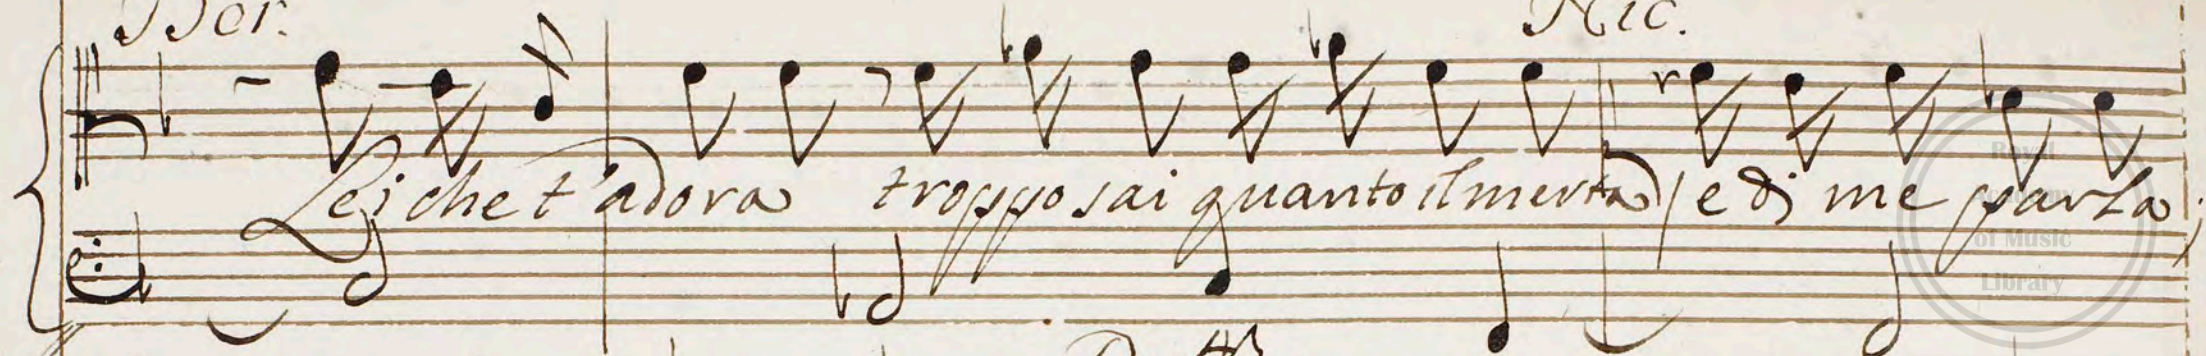 Ber. Nic.
Lei che t'adora troppo sai quanto il merta (e di me parla)
Royal Academy of Music Library